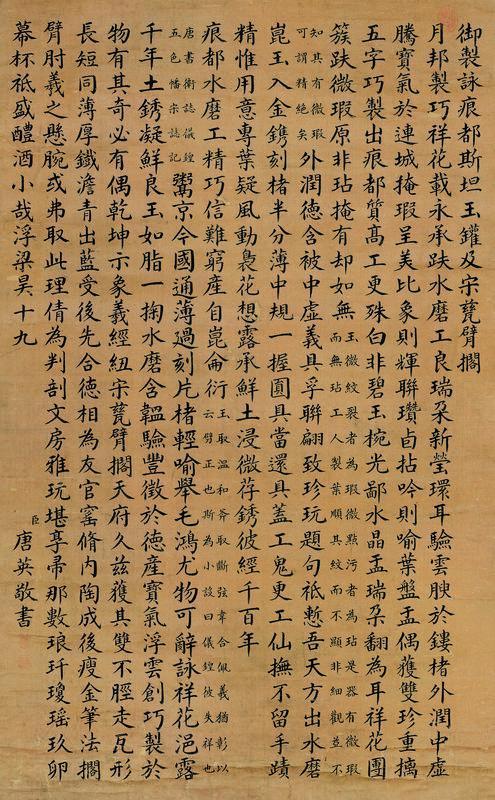 御製詠痕都斯坦玉鑵及宋甆臂擱
月邦製巧祥花載永承趺水磨工良瑞朶新瑩環耳驗雲腴於鏤楮外潤中虛
騰寶氣於連城掩瑕呈美比象則輝聯瓚卣拈吟則喻葉盤盂偶獲雙珍重摛
五字巧製出痕都質高工更殊白非碧玉椀光鄙水晶盂瑞朶翻為耳祥花團
簇趺微瑕原非玷掩有却如無
玉微紋裂者為瑕微點污者為玷是器有微瑕
而無玷工人製葉順具紋而不顯非細觀並不
知具有微瑕
可謂精絶矣
外潤德含被中虛義具孚聯翩致珍玩題句祗慙吾天方出水磨
崑玉入金鎸刻楮半分薄中規一握圓具當還具蓋工鬼更工仙撫不留手蹟
精惟用意專葉疑風動裊花想露承鮮土浸微荐銹彼經千百年
痕都水磨工精巧信難窮産自崑侖衍
玉取溫和斧取斷弦韋合佩義猶彰以
云劈正也斯為小設曰儀鍠彼失祥也
唐書衛誌儀鍠
五色幡宗誌記
鬻京今國通薄過刻片楮輕喻舉毛鴻尤物可辭詠祥花浥露
千年土銹凝鮮良玉如脂一掬水磨含韞驗豐徵於德産寶氣浮雲創巧製於
物有其奇必有偶乾坤示象義經紐宋甆臂擱天府久茲獲其雙不脛走瓦形
長短同薄厚鐵澹青出藍受後先合德相為友官窰脩內陶成後瘦金筆法擱
臂肘羲之懸腕或弗取此理倩為判剖文房雅玩堪享帚那數琅玕瓊瑤玖卯
幕杯祗盛醴酒小哉浮梁昊十九
臣唐英敬書